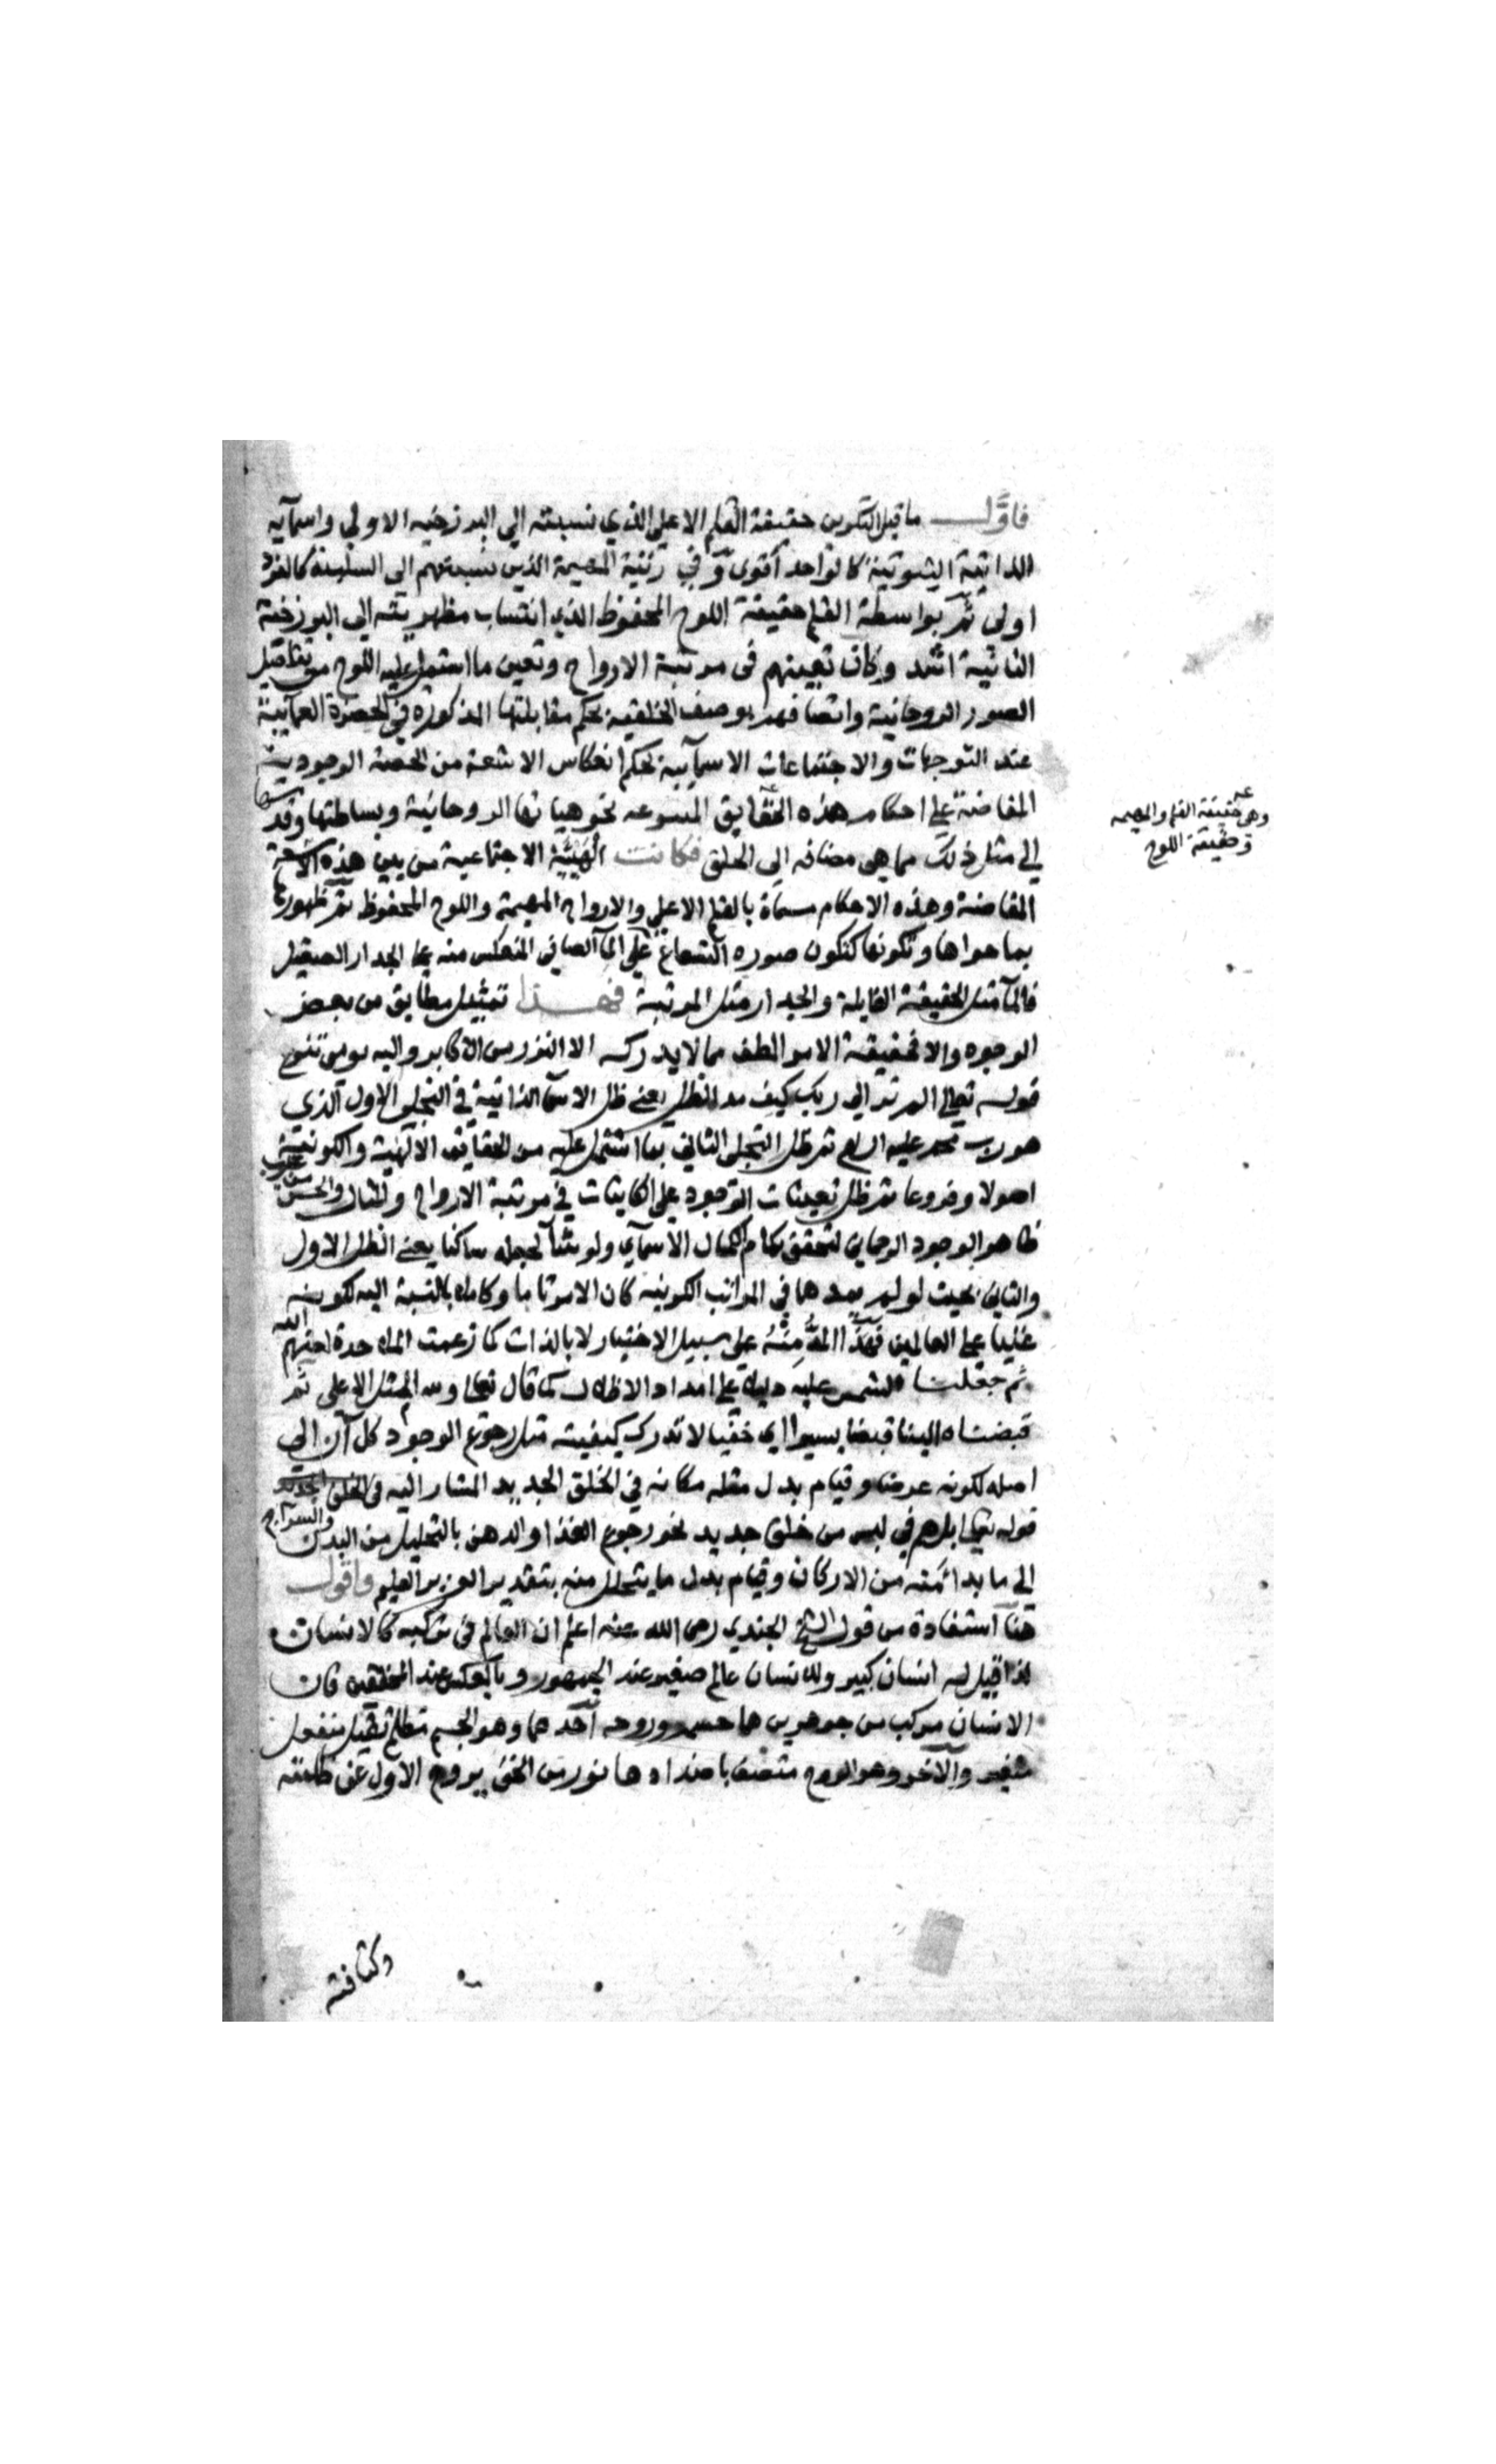 فاول ما قبل التكوين حقيقة القلم الاعلى الذي نسبته الى البرزخية الاولى واسمآيه
الذاتية الثبوتية كالواحد أقوى وفي رتبته المهيمة الذين نسبتهم الى السلبية كالفرد
اولى ثم بواسطة القلم حقيقة اللوح المحفوظ الذي انتساب مظهريته الى البرزخية
الثانية اشد وكان تعينهم في مرتبة الارواح وتعين ما اشتمل عليه اللوح من تفاصيل
الصور الروحانية واتصافهم بوصف الخلقية بحكم مقابلتها المذكورة في الحضرة العمآئية
عند التوجهات والاجتماعات الاسمآيية بحكم انعكاس الاشعة من الحصة الوجودية
المفاضة على احكام هذه الحقايق المتنوعه نحو هياتها الروحانية وبساطتها وقدسها
الى مثل ذلك مما هي مضافه الى الخلق فكانت الهيئة الاجتماعية من بين هذه الاشعة
المفاضة وهذه الاحكام مسماة بالقلم الاعلى والارواح المهيمة واللوح المحفوظ ثم ظهورها
بما حواها وتكونها كتكون صوره الشعاع على المآ الصافي المنعكس منه على الجدار الصقيل
فالمآ مثل الحقيقة القابلة والجدار مثل المرتبة فهذا تمثيل مطابق من بعض
الوجوه والا فحقيقة الامر الطف مما لا يدركه الا النزر من الاكابر واليه يومي
قوله تعالى الم تر الى ربك كيف مد الظل يعني ظل الاسمآ الذاتية في التجلي الاول الذي
هو رب محمد عليه السلم ثم ظل التجلي الثاني بما اشتمل عليه من الحقايق الالهية والكونية
اصولا وفروعا ثم ظل تعينات الوجود على الكاينات في مرتبة الارواح والمثال والحس من حيث
ظاهر الوجود الرحماني لتحقق كمام الكمال الاسمآي ولو شآ لجعله ساكنا يعني الظل الاول
والثاني بحيث لو لم يمدهما في المراتب الكونية كان الامر تاما وكاملا بالنسبة اليه لكونه
غنيا عن العالمين فهذا المد منه على سبيل الاختيار لا بالذات كما زعمت الملاحدة لعنهم الله
ثم جعلنا الشمس عليه دليلا على امداد الاظلال كما قال تعالى ولله المثل الاعلى ثم
قبضناه الينا قبضا يسيرا اي خفيا لا تدرك كيفيته مثل رجوع الوجود كل آن الى
اصله لكونه عرضا وقيام بدل مثله مكانه في الخلق الجديد المشار اليه في
قوله تعالى بل هم في لبس من خلق جديد نحو رجوع الغذا والدهن بالتحليل من البدن والسراج
الى ما بدا منه من الاركان وقيام بدل ما يتحلل منه بتقدير العزيز العليم واقول
هنا استفادة من قول الشيخ الجندي رضى الله عنه اعلم ان العالم في تركيبه كالانسان
لذا قيل له انسان كبير وللانسان عالم صغير عند الجمهور وبالعكس عند المحققين فان
الانسان مركب من جوهرين هما جسمه وروحه احدهما وهو الجسم مظلم ثقيل منفعل
متغير والآخر وهو الروح متصف باضدادها نور من الحق يروح الاول عن ظلمته
وكثافته
وهي حقيقة القلم والمهيمه
وحقيقة اللوح